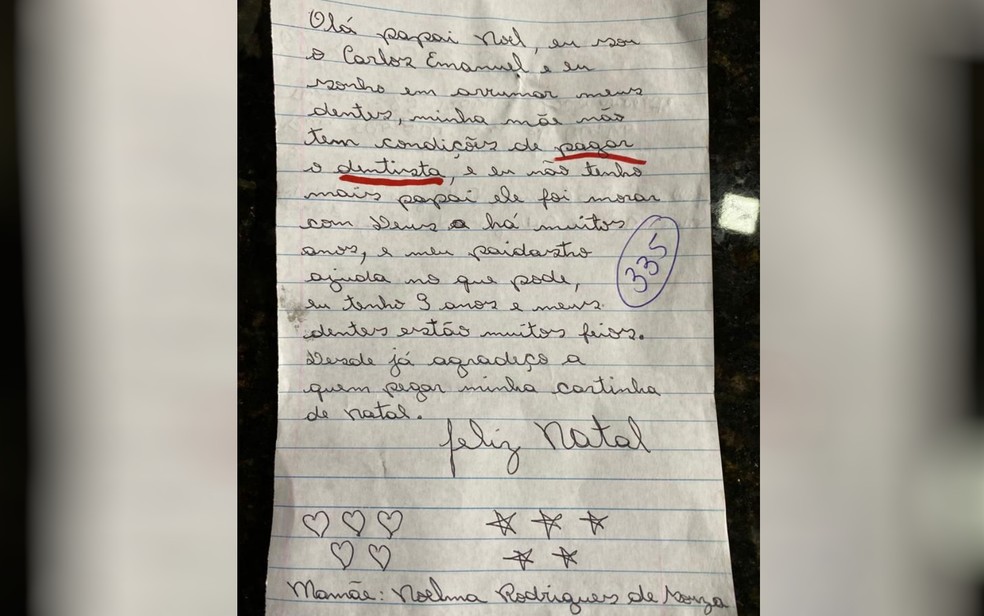 Olá papai Noel, eu sou
o Carlos Emanuel e eu
sonho em arrumar meus
dentes, minha mãe não
tem condições de pagar
o dentista, e eu não tenho
mais papai ele foi morar
com Deus a há muitos
anos, e meu paidastro
ajuda no que pode,
eu tenho 9 anos e meus
dentes estão muitos feios.
Desde já agradeço a
quem pegar minha cartinha
de natal.
feliz Natal
335
Mamãe: Noelma Rodrigues de Souza